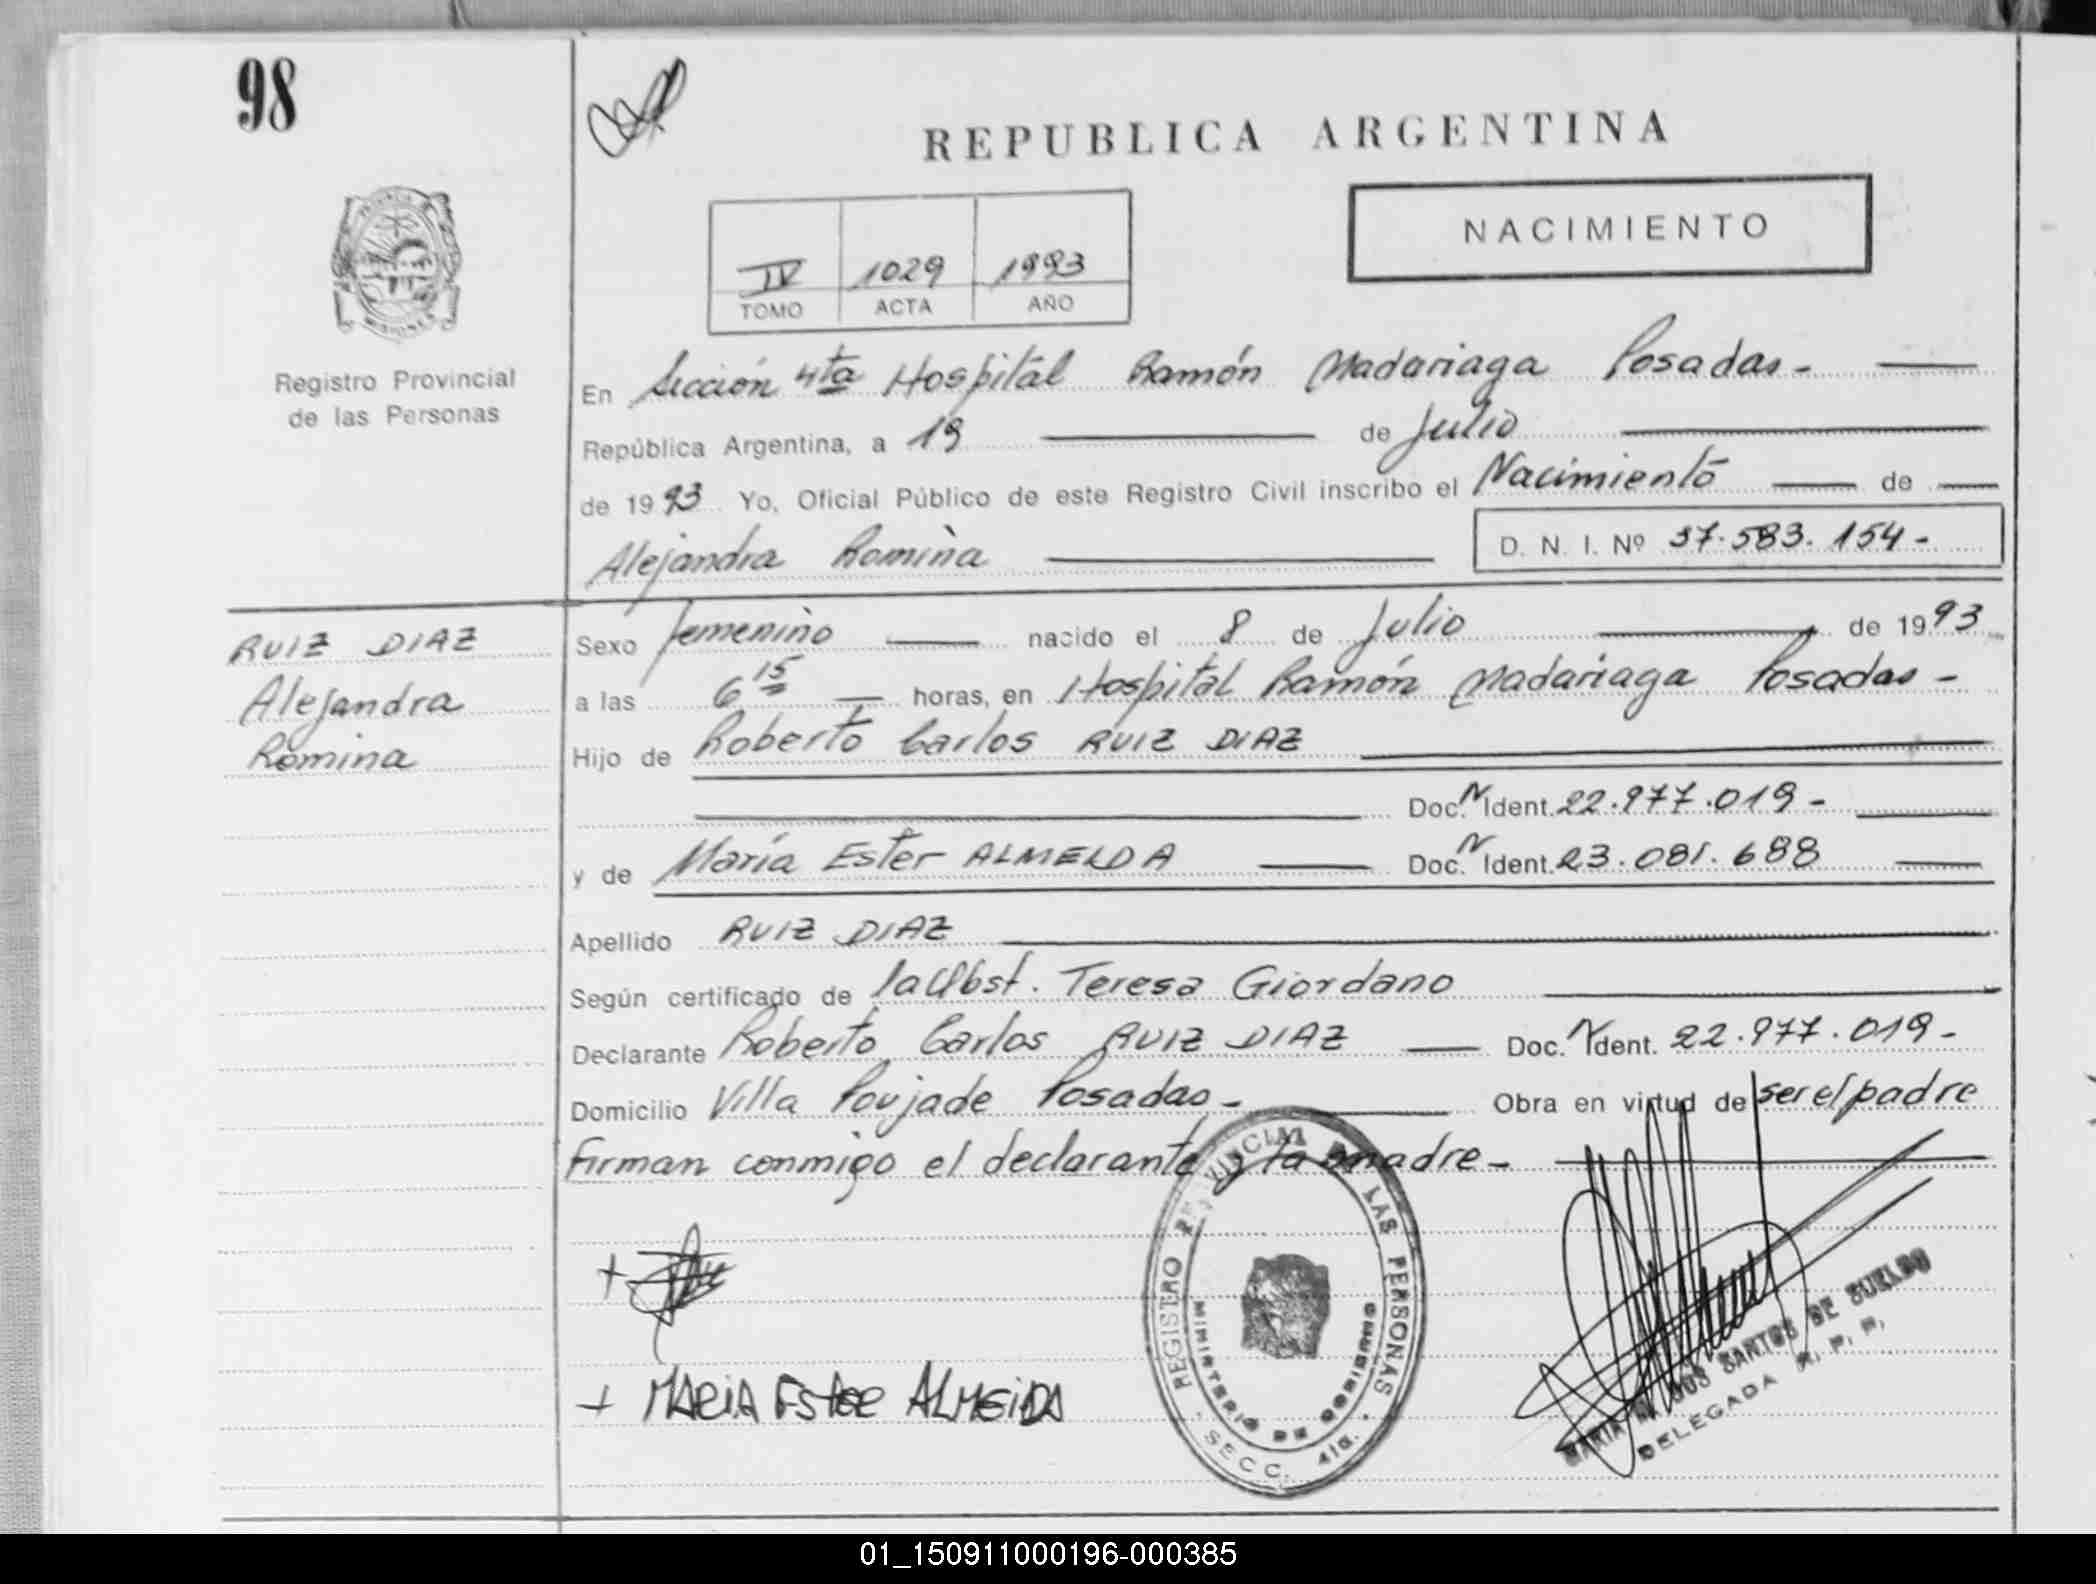 98
REPUBLICA ARGENTINA
NACIMIENTO
IV 1029 1993
TOMO ACTA AÑO
MISIONES
Registro Provincial
de las Personas
En Sección 4ta Hospital Ramón Madariaga Posadas-
República Argentina, a 19 de Julio
de 1993 Yo, Oficial Público de este Registro Civil inscribo el Nacimiento de
Alejandra Romina
D. N. I. Nº 37.583.154-
RUIZ DIAZ
Alejandra
Romina
Sexo femenino nacido el 8 de Julio de 1993
a las 6 15 horas, en Hospital Ramón Madariaga Posadas-
Hijo de Roberto Carlos RUIZ DIAZ
Doc. N Ident. 22.977.019-
y de María Ester ALMEIDA Doc. N Ident. 23.081.688
Apellido RUIZ DIAZ
Según certificado de la Obst. Teresa Giordano
Declarante Roberto Carlos RUIZ DIAZ Doc. N Ident. 22.977.019-
Domicilio Villa Poujade Posadas- Obra en virtud de ser el padre
Firman conmigo el declarante y la madre-
REGISTRO PROVINCIAL DE LAS PERSONAS
MINISTERIO DE GOBIERNO
SECC. 4ta.
+ MARIA ESTER ALMEIDA
MARIA DOS SANTOS DE SUELDO
DELEGADA R. P. P.
01_150911000196-000385